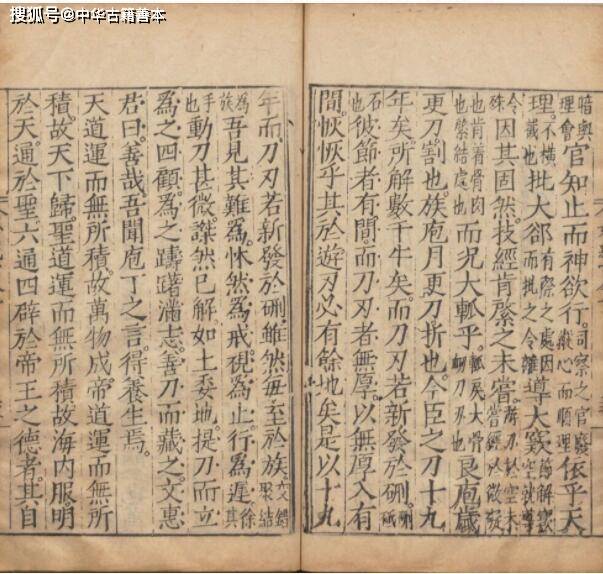 搜狐号@中华古籍善本
暗與理會官知止而神欲行。司察之官廢縱心而順理依乎天
理。不橫截也批大郤有際之處因而批之令離導大窾節解窾空就導
令殊因其固然。技經肯綮之未嘗游刃於空未嘗經於微礙
也肯著骨肉也綮結處也而況大軱乎。軱戾大骨衂刀刃也良庖歲
更刀。割也。族庖月更刀。折也。今臣之刀十九
年矣。所解數千牛矣。而刀刃若新發於硎。硎砥
石也彼節者有間。而刀刃者無厚。以無厚入有
間。恢恢乎其於遊刃必有餘地矣是以十九
年而刀刃若新發於硎雖然每至於族交錯聚結
為族吾見其難為。怵然為戒。視為止。行為遲。徐其
手也動刀甚微。謋然已解如土委地。提刀而立
為之四顧。為之躊躇滿志善刀而藏之。文惠
君曰。善哉吾聞庖丁之言。得養生焉。
天道運而無所積。故萬物成帝道運而無所
積。故天下歸。聖道運而無所積故海內服明
於天。通於聖六通四辟於帝王之德者。其自